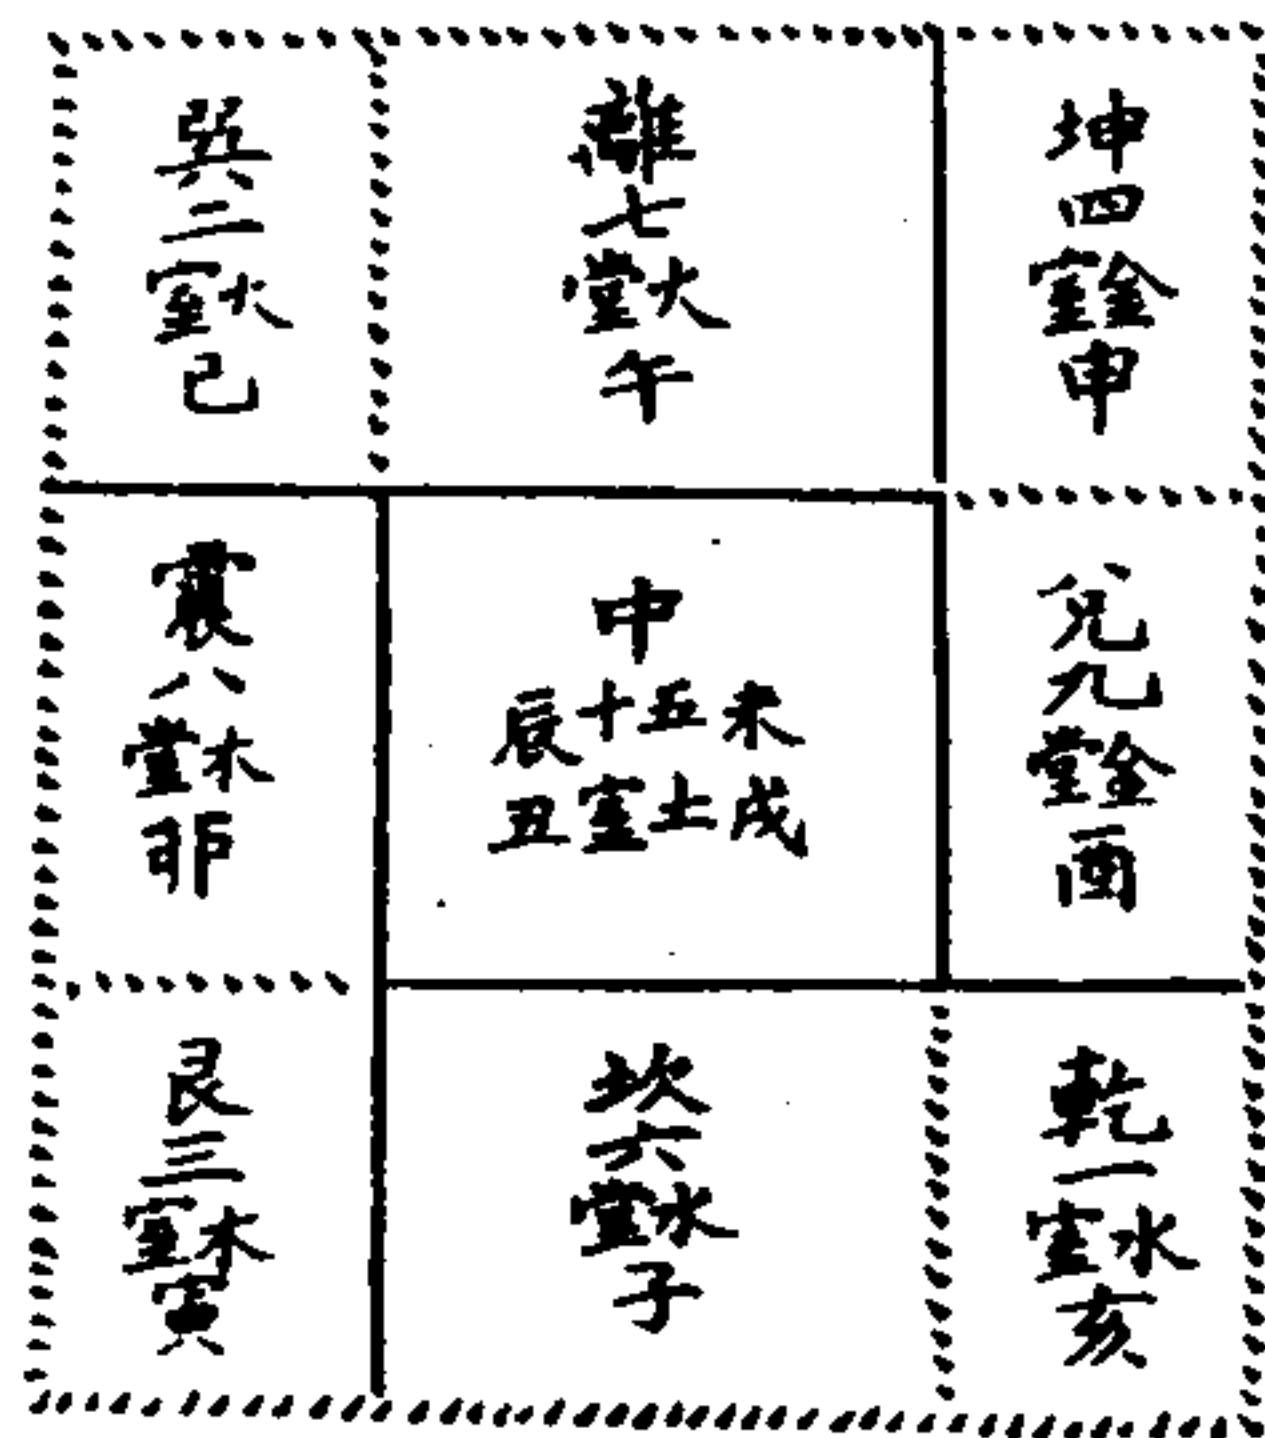 巽
二
室火
巳
離
七
堂火
午
坤
四
室金
申
震
八
堂木
卯
中
辰十五未
丑室土戌
兌
九
堂金
酉
艮
三
室木
寅
坎
六
堂水
子
乾
一
室水
亥